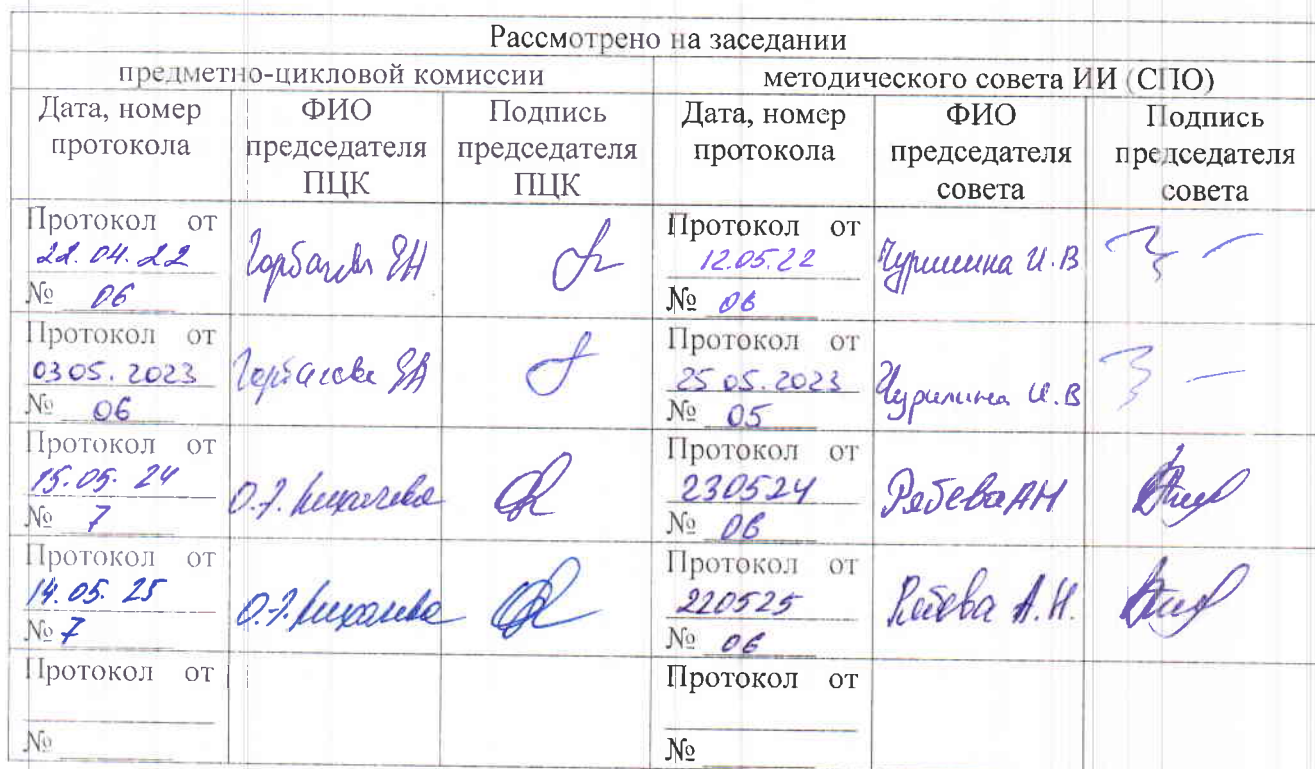 Рассмотрено на заседании
предметно-цикловой комиссии методического совета ИИ (СПО)
Дата, номер протокола ФИО председателя ПЦК Подпись председателя ПЦК Дата, номер протокола ФИО председателя совета Подпись председателя совета
Протокол от
22.04.22
№ 06
Горбачева ЕН
Протокол от
12.05.22
№ 06
И.В
Протокол от
03 05. 2023
№ 06
Горбачева
Протокол от
25 05. 2023
№ 05
Чурилина И.В
Протокол от
15.05.24
№ 7
Протокол от
230524
№ 06
Рябева АН
Протокол от
14.05.25
№ 7
Протокол от
220525
№ 06
Рябева А.Н.
Протокол от
№
Протокол от
№